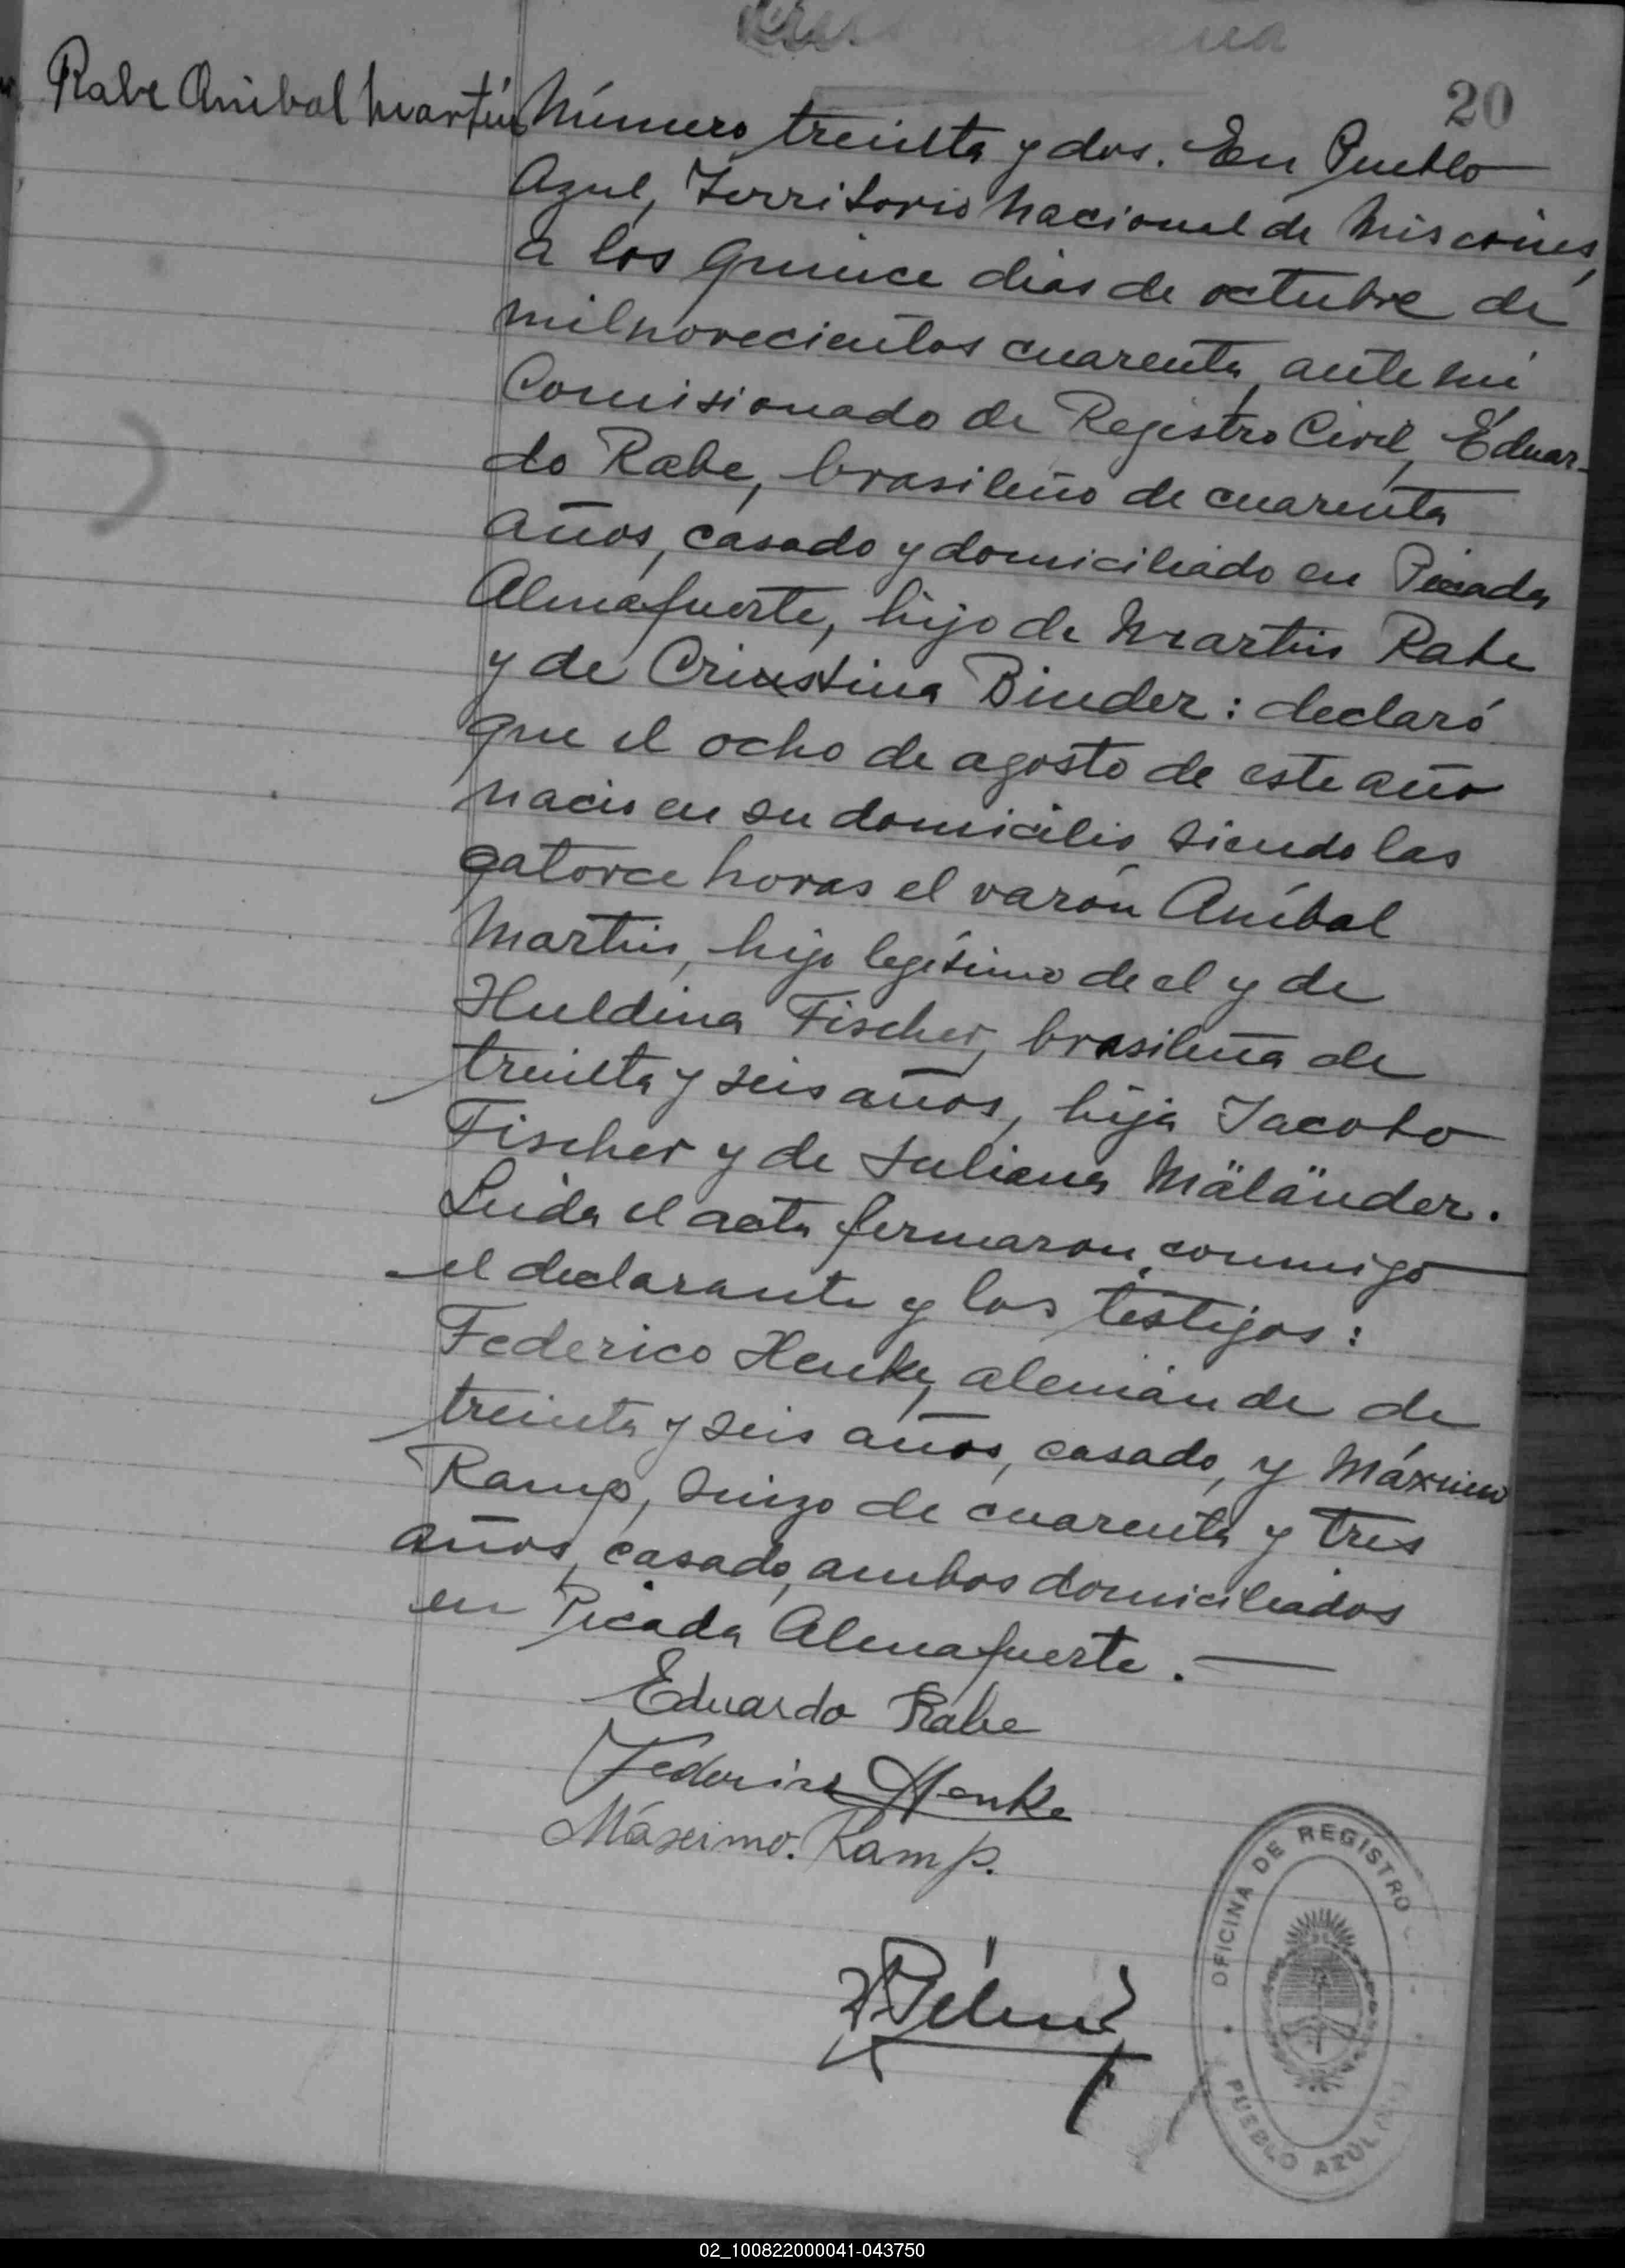 20
Rabe Anibal Martín
Número treinta y dos. En Pueblo
Azul, Territorio Nacional de Misiones,
a los quince dias de octubre de
mil novecientos cuarenta, ante mi
Comisionado de Registro Civil, Eduar-
do Rabe, brasileño de cuarenta
años, casado y domiciliado en Picada
Almafuerte, hijo de Martin Rabe
y de Cristina Binder: declaró
que el ocho de agosto de este año
nacio en su domicilio siendo las
catorce horas el varón Aníbal
Martin, hijo legítimo de el y de
Huldina Fischer, brasileña de
treinta y seis años, hija Jacobo
Fischer y de Juliana Mäländer.
Leida el acta firmaron conmigo
el declarante y los testigos:
Federico Henke, alemán de de
treinta y seis años, casado, y Máximo
Ramp, suizo de cuarenta y tres
años, casado, ambos domiciliados
en Picada Almafuerte.
Eduardo Rabe
Federico Henke
Máximo. Ramp.
OFICINA DE REGISTRO
PUEBLO AZUL
02_100822000041-043750